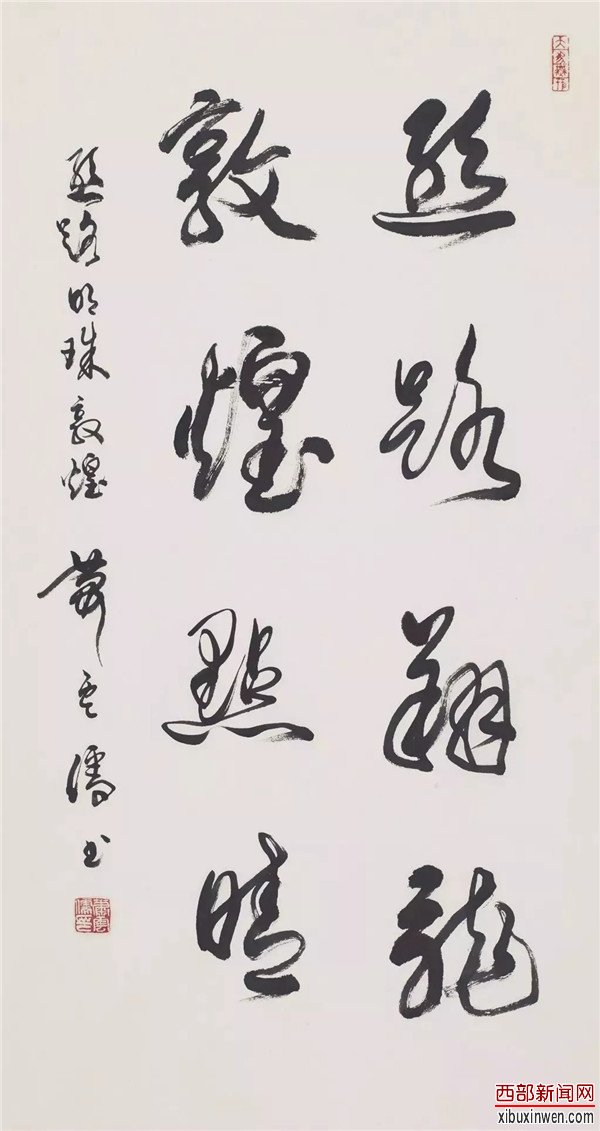 丝路翔龍
敦煌點睛
丝路明珠敦煌 萧云儒书
西部新闻网
xibuxinwen.com